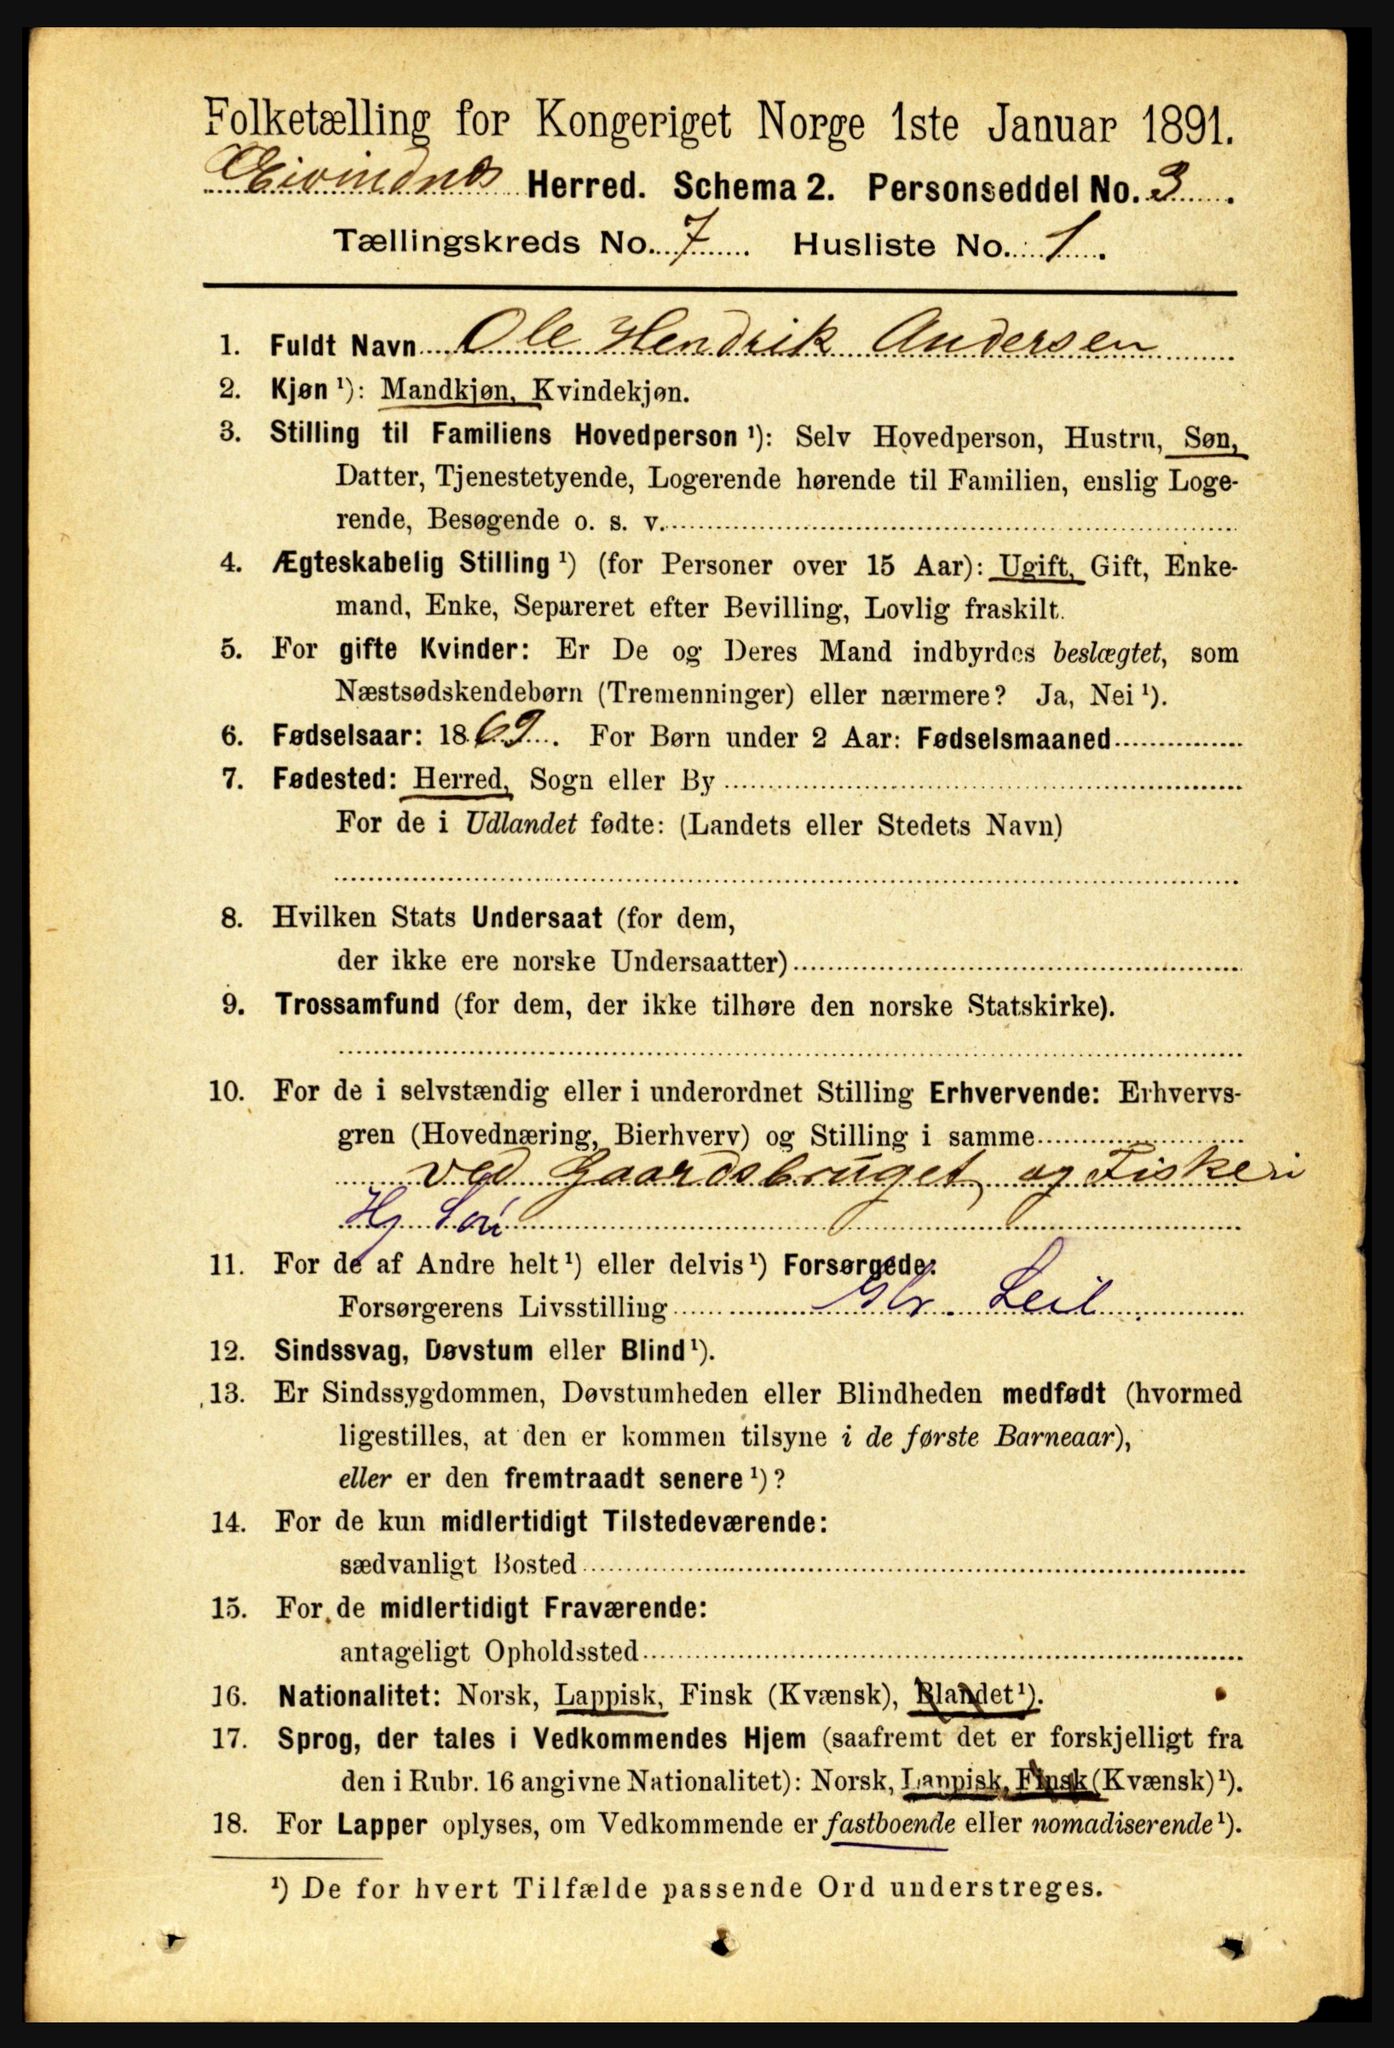 Folketælling for Kongeriget Norge 1ste Januar 1891.
Evindnes Herred. Schema 2. Personseddel No. 3.
Tællingskreds No. 7. Husliste No. 1.
1. Fuldt Navn Ole Hendrik Andersen
2. Kjøn ¹): Mandkjøn, Kvindekjøn.
3. Stilling til Familiens Hovedperson ¹): Selv Hovedperson, Hustru, Søn,
Datter, Tjenestetyende, Logerende hørende til Familien, enslig Loge-
rende, Besøgende o. s. v.
4. Ægteskabelig Stilling ¹) (for Personer over 15 Aar): Ugift, Gift, Enke-
mand, Enke, Separeret efter Bevilling, Lovlig fraskilt.
5. For gifte Kvinder: Er De og Deres Mand indbyrdes beslægtet, som
Næstsødskendebørn (Tremenninger) eller nærmere? Ja, Nei ¹).
6. Fødselsaar: 1869. For Børn under 2 Aar: Fødselsmaaned
7. Fødested: Herred, Sogn eller By
For de i Udlandet fødte: (Landets eller Stedets Navn)
8. Hvilken Stats Undersaat (for dem,
der ikke ere norske Undersaatter)
9. Trossamfund (for dem, der ikke tilhøre den norske Statskirke).
10. For de i selvstændig eller i underordnet Stilling Erhvervende: Erhvervs-
gren (Hovednæring, Bierhverv) og Stilling i samme
ved Gaardsbruget og Fiskeri
Hj
11. For de af Andre helt ¹) eller delvis ¹) Forsørgede:
Forsørgerens Livsstilling
12. Sindssvag, Døvstum eller Blind ¹).
13. Er Sindssygdommen, Døvstumheden eller Blindheden medfødt (hvormed
ligestilles, at den er kommen tilsyne i de første Barneaar),
eller er den fremtraadt senere ¹)?
14. For de kun midlertidigt Tilstedeværende:
sædvanligt Bosted
15. For de midlertidigt Fraværende:
antageligt Opholdssted
16. Nationalitet: Norsk, Lappisk, Finsk (Kvænsk), Blandet ¹).
17. Sprog, der tales i Vedkommendes Hjem (saafremt det er forskjelligt fra
den i Rubr. 16 angivne Nationalitet): Norsk, Lappisk, Finsk (Kvænsk) ¹).
18. For Lapper oplyses, om Vedkommende er fastboende eller nomadiserende ¹).
¹) De for hvert Tilfælde passende Ord understreges.